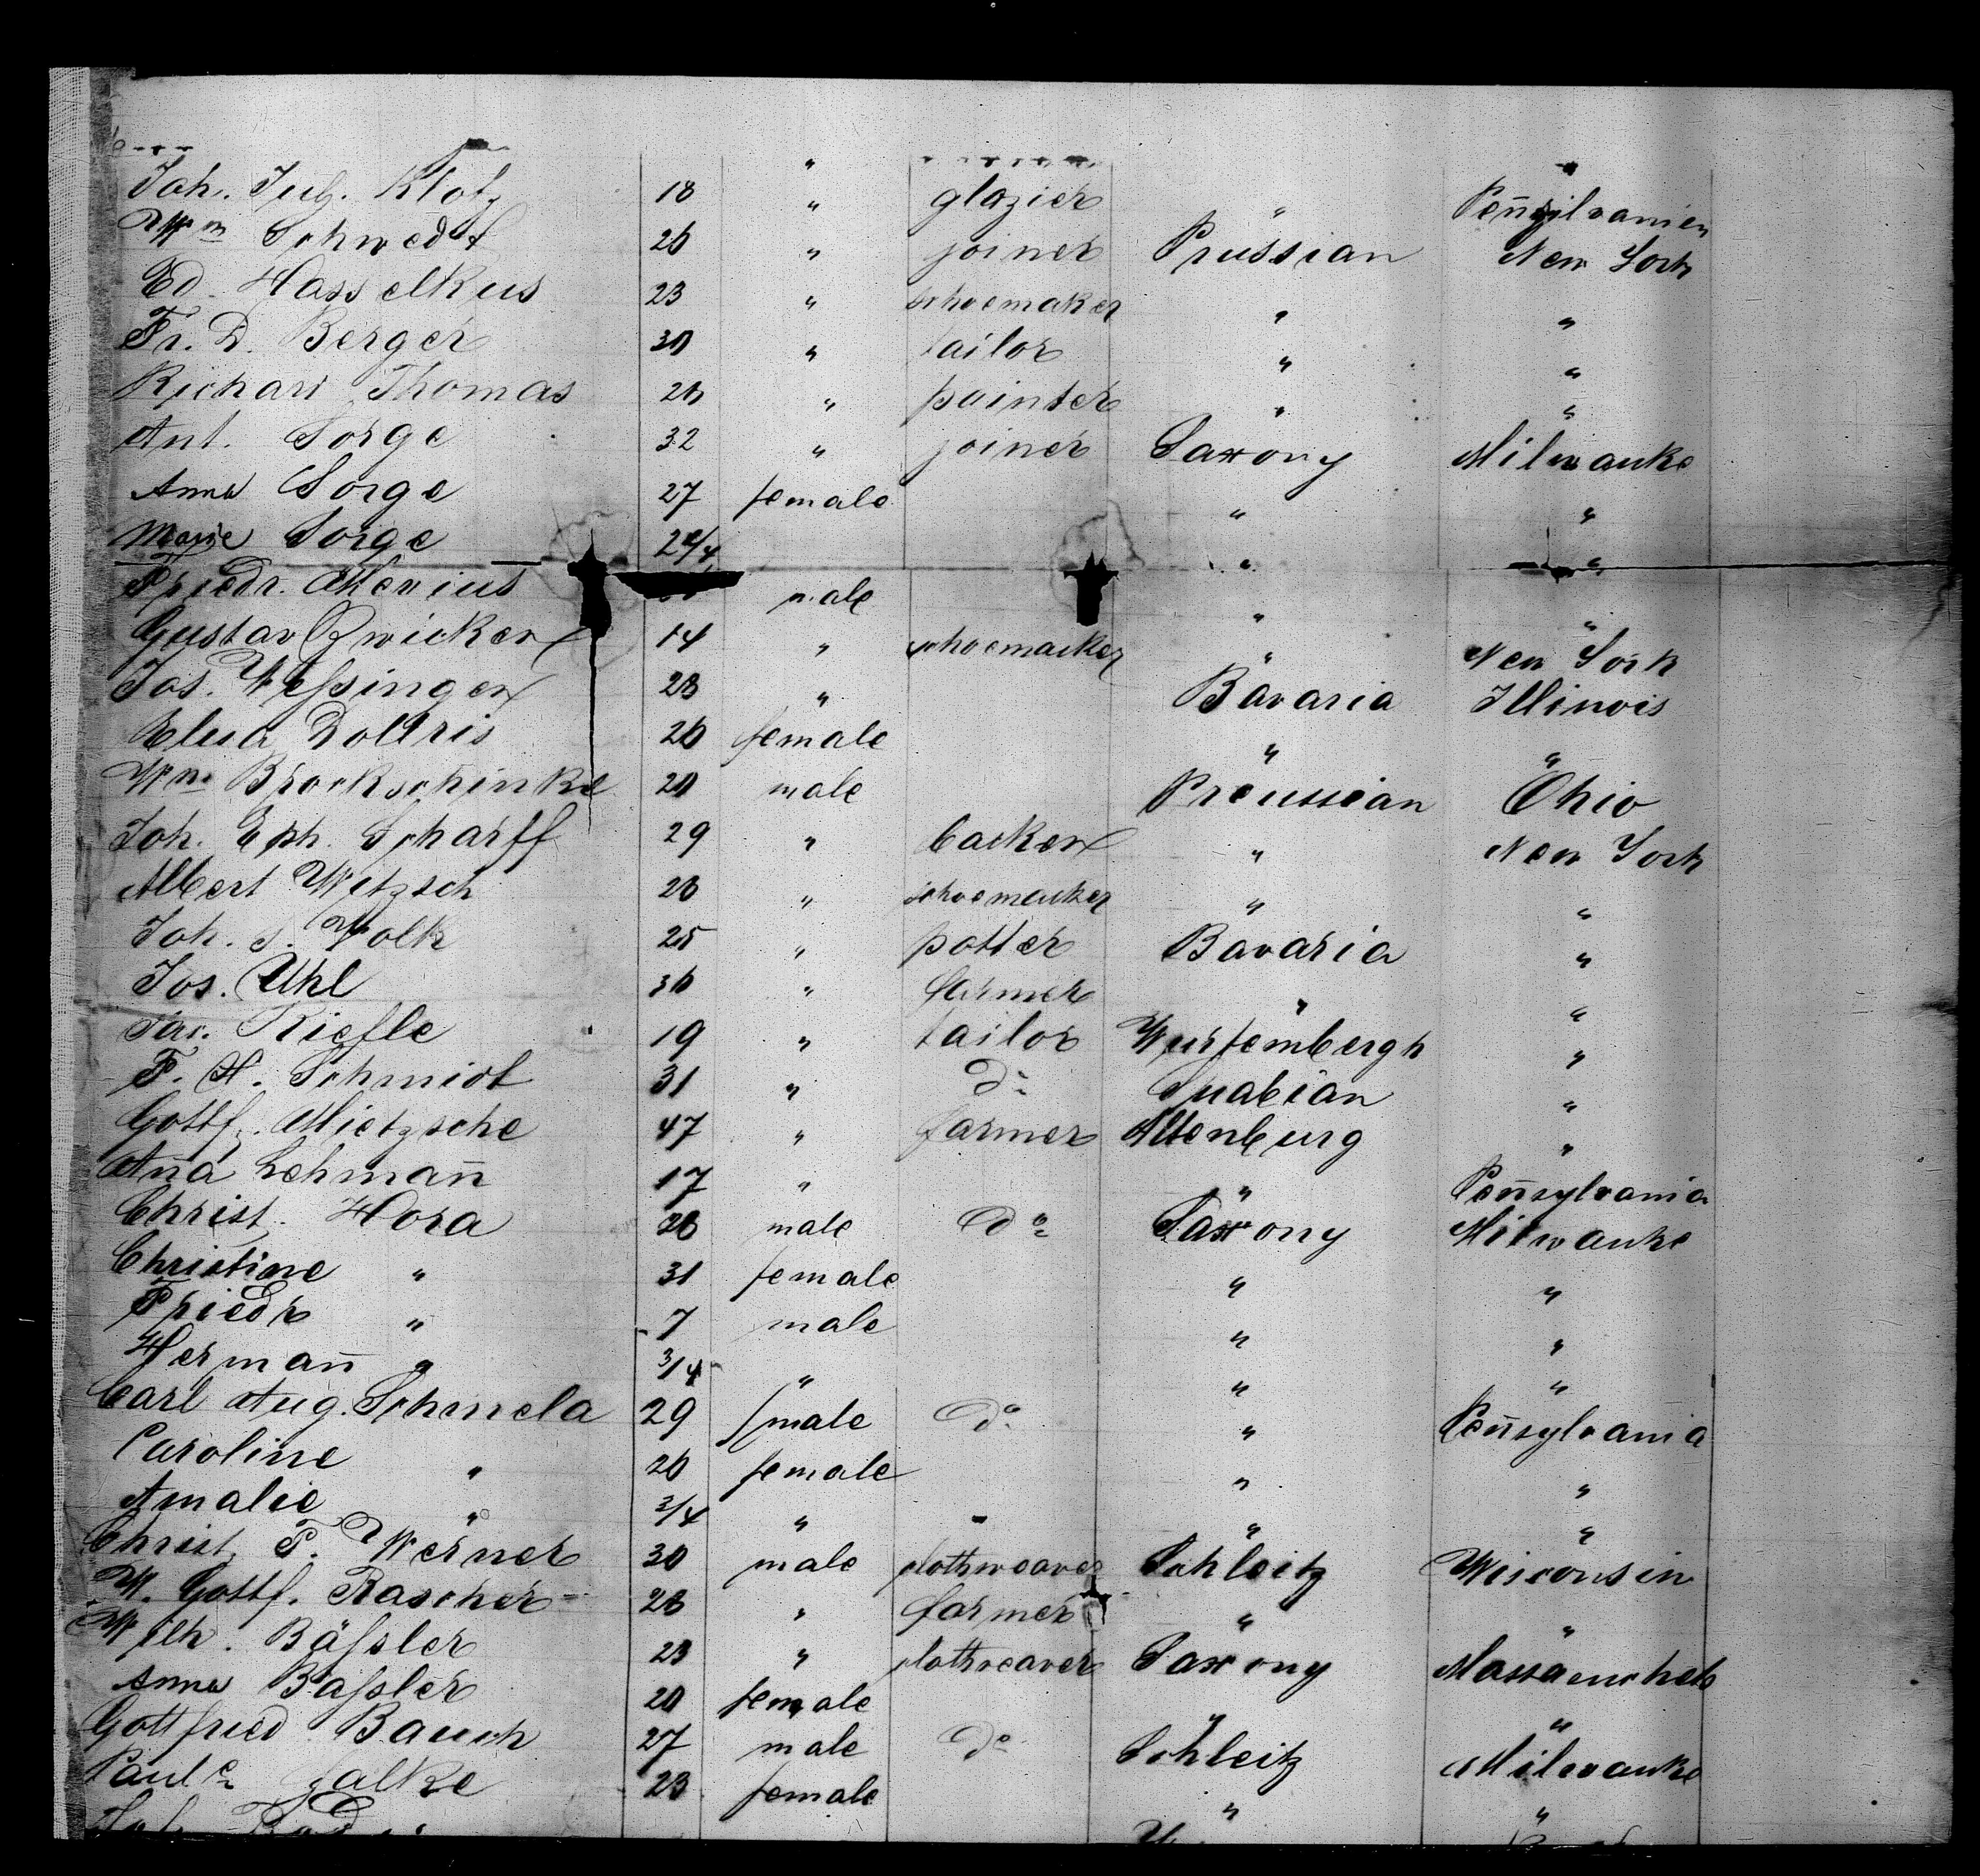 Joh. Jul. Klotz 18 " glazier " Peñsylvanien
Wm Schwedt 26 " joiner Prussian New York
Ed. Hasselkus 23 " schoemaker " "
Fr. D. Berger 30 " tailor " "
Richard Thomas 26 " painter " "
Ant. Sorge 32 " joiner Saxony Milwauke
Anna Sorge 27 female " "
Marie Sorge 2 " "
Friedr. Mevius male " "
Gustav Zwicker 14 " schoemacker " New York
Jos. Weßinger 28 " Bavaria Illinois
Elisa Dollris 26 female " "
Wm Brockschinke 20 male Preussian Ohio
Joh. Eph. Scharff 29 " backer " New York
Albert Witzsch 28 " schoemacker " "
Joh. S. Volk 25 " potter Bavaria "
Jos. Uhl 36 " farmer " "
Jac. Riefle 19 " tailor Wurtembergh "
F. H. Schmidt 31 " do Suabian "
Gottf. Mietzsche 47 " farmer Altenburg "
Aña Lehmañ 17 " " Peñsylvania
Christ. Hora 28 male do Saxony Milwauke
Christine " 31 female " "
Friedr " 7 male " "
Hermañ " 3/4 " " "
Carl Aug. Schmela 29 male do " Peñsylvania
Caroline " 26 female " "
Amalie " 3/4 " " "
Christ. F. Werner 30 male clothweaver Schleitz Wisconsin
W. Gottf. Rascher 28 " farmer " "
Wilh. Bäßler 23 " clothweaver Saxony Massaeuchets
Anna Baßler 20 female " "
Gottfried Bauch 27 male do Schleitz Milwauke
Paule Falke 23 female " "
Joh.